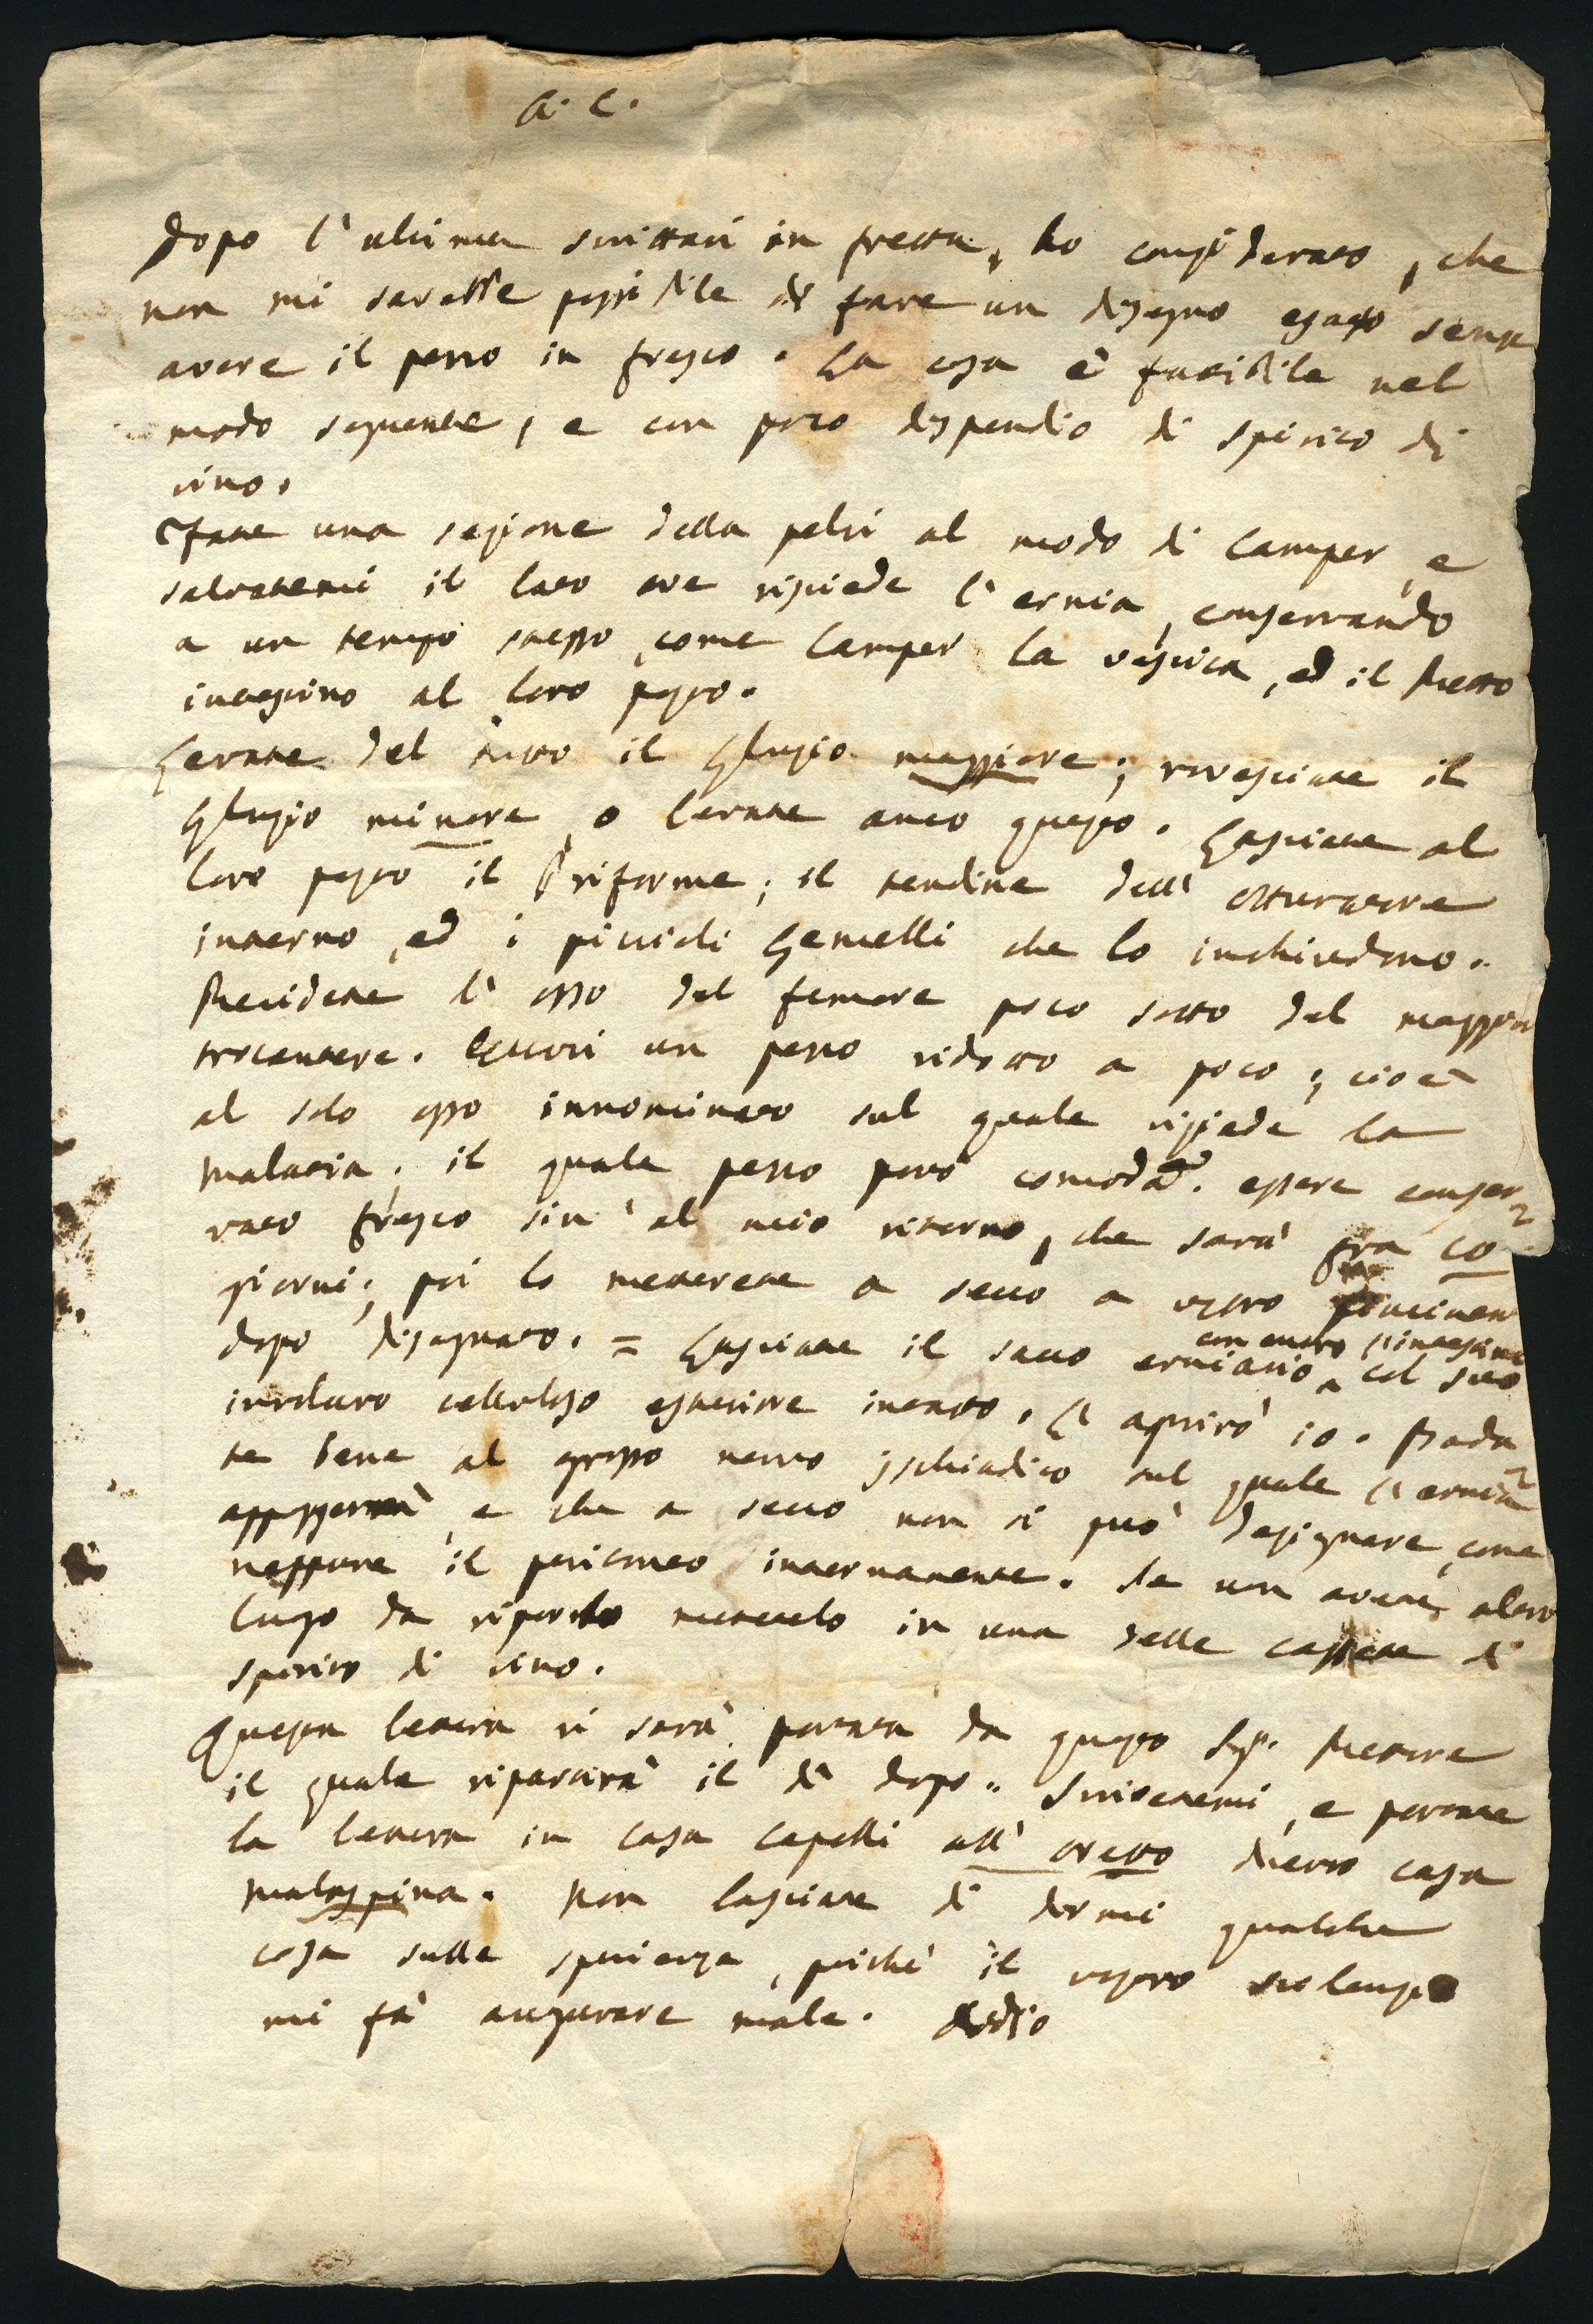 A. C.
Dopo l'ultima scrittavi in fretta, ho considerato, che
non mi sarebbe possibile di fare un disegno esatto senza
avere il pezzo in fresco. La cosa è fattibile nel
modo seguente, e con poco dispendio di spirito di
vino.
Fate una sezione della pelvi al modo di Camper, e
salvatemi il lato ove risiede l'ernia, conservando
a un tempo stesso, come Camper la vescica, ed il Retto
intestino al loro posto.
Levate del tutto il Gluzio maggiore; rovesciate il
Gluzio minore, o levate anco questo. Lasciate al
loro posto il Piriforme; il tendine dell' otturatore
interno, ed i piccioli Gemelli che lo inchiudono.
Recidete l'osso del femore poco sotto del maggior
trocantere. Eccovi un pezzo ridotto a poco; cioè
al solo osso innominato sul quale risiede la
malatia; il quale pezzo potrà comodam. essere conser
vato fresco sin' al mio ritorno, che sarà fra 10
giorni; poi lo metterete a secco a vostro
dopo disegnato. = Lasciate il sacco erniario col suo
con entro l'intestino
involucro celluloso esteriore intatto. L'aprirò io. Bada
te bene al grosso nervo ischiadico sul quale l'ernia
appoggerà, e che a secco non si può designare, come
neppure il peritoneo internamente. Se non avete altro
luogo da riporlo mettetelo in una delle cassette di
spirito di vino.
Questa lettera vi sarà portata da questo Sig. Rettore
il quale ripartirà il dì dopo. Scrivetemi, e portate
la lettera in casa Capelli all' oretto dietro casa
Malaspina. Non lasciate di dirmi qualche
cosa sulla sperienza, poichè il vostro silenzio
mi fà augurare male. Addio